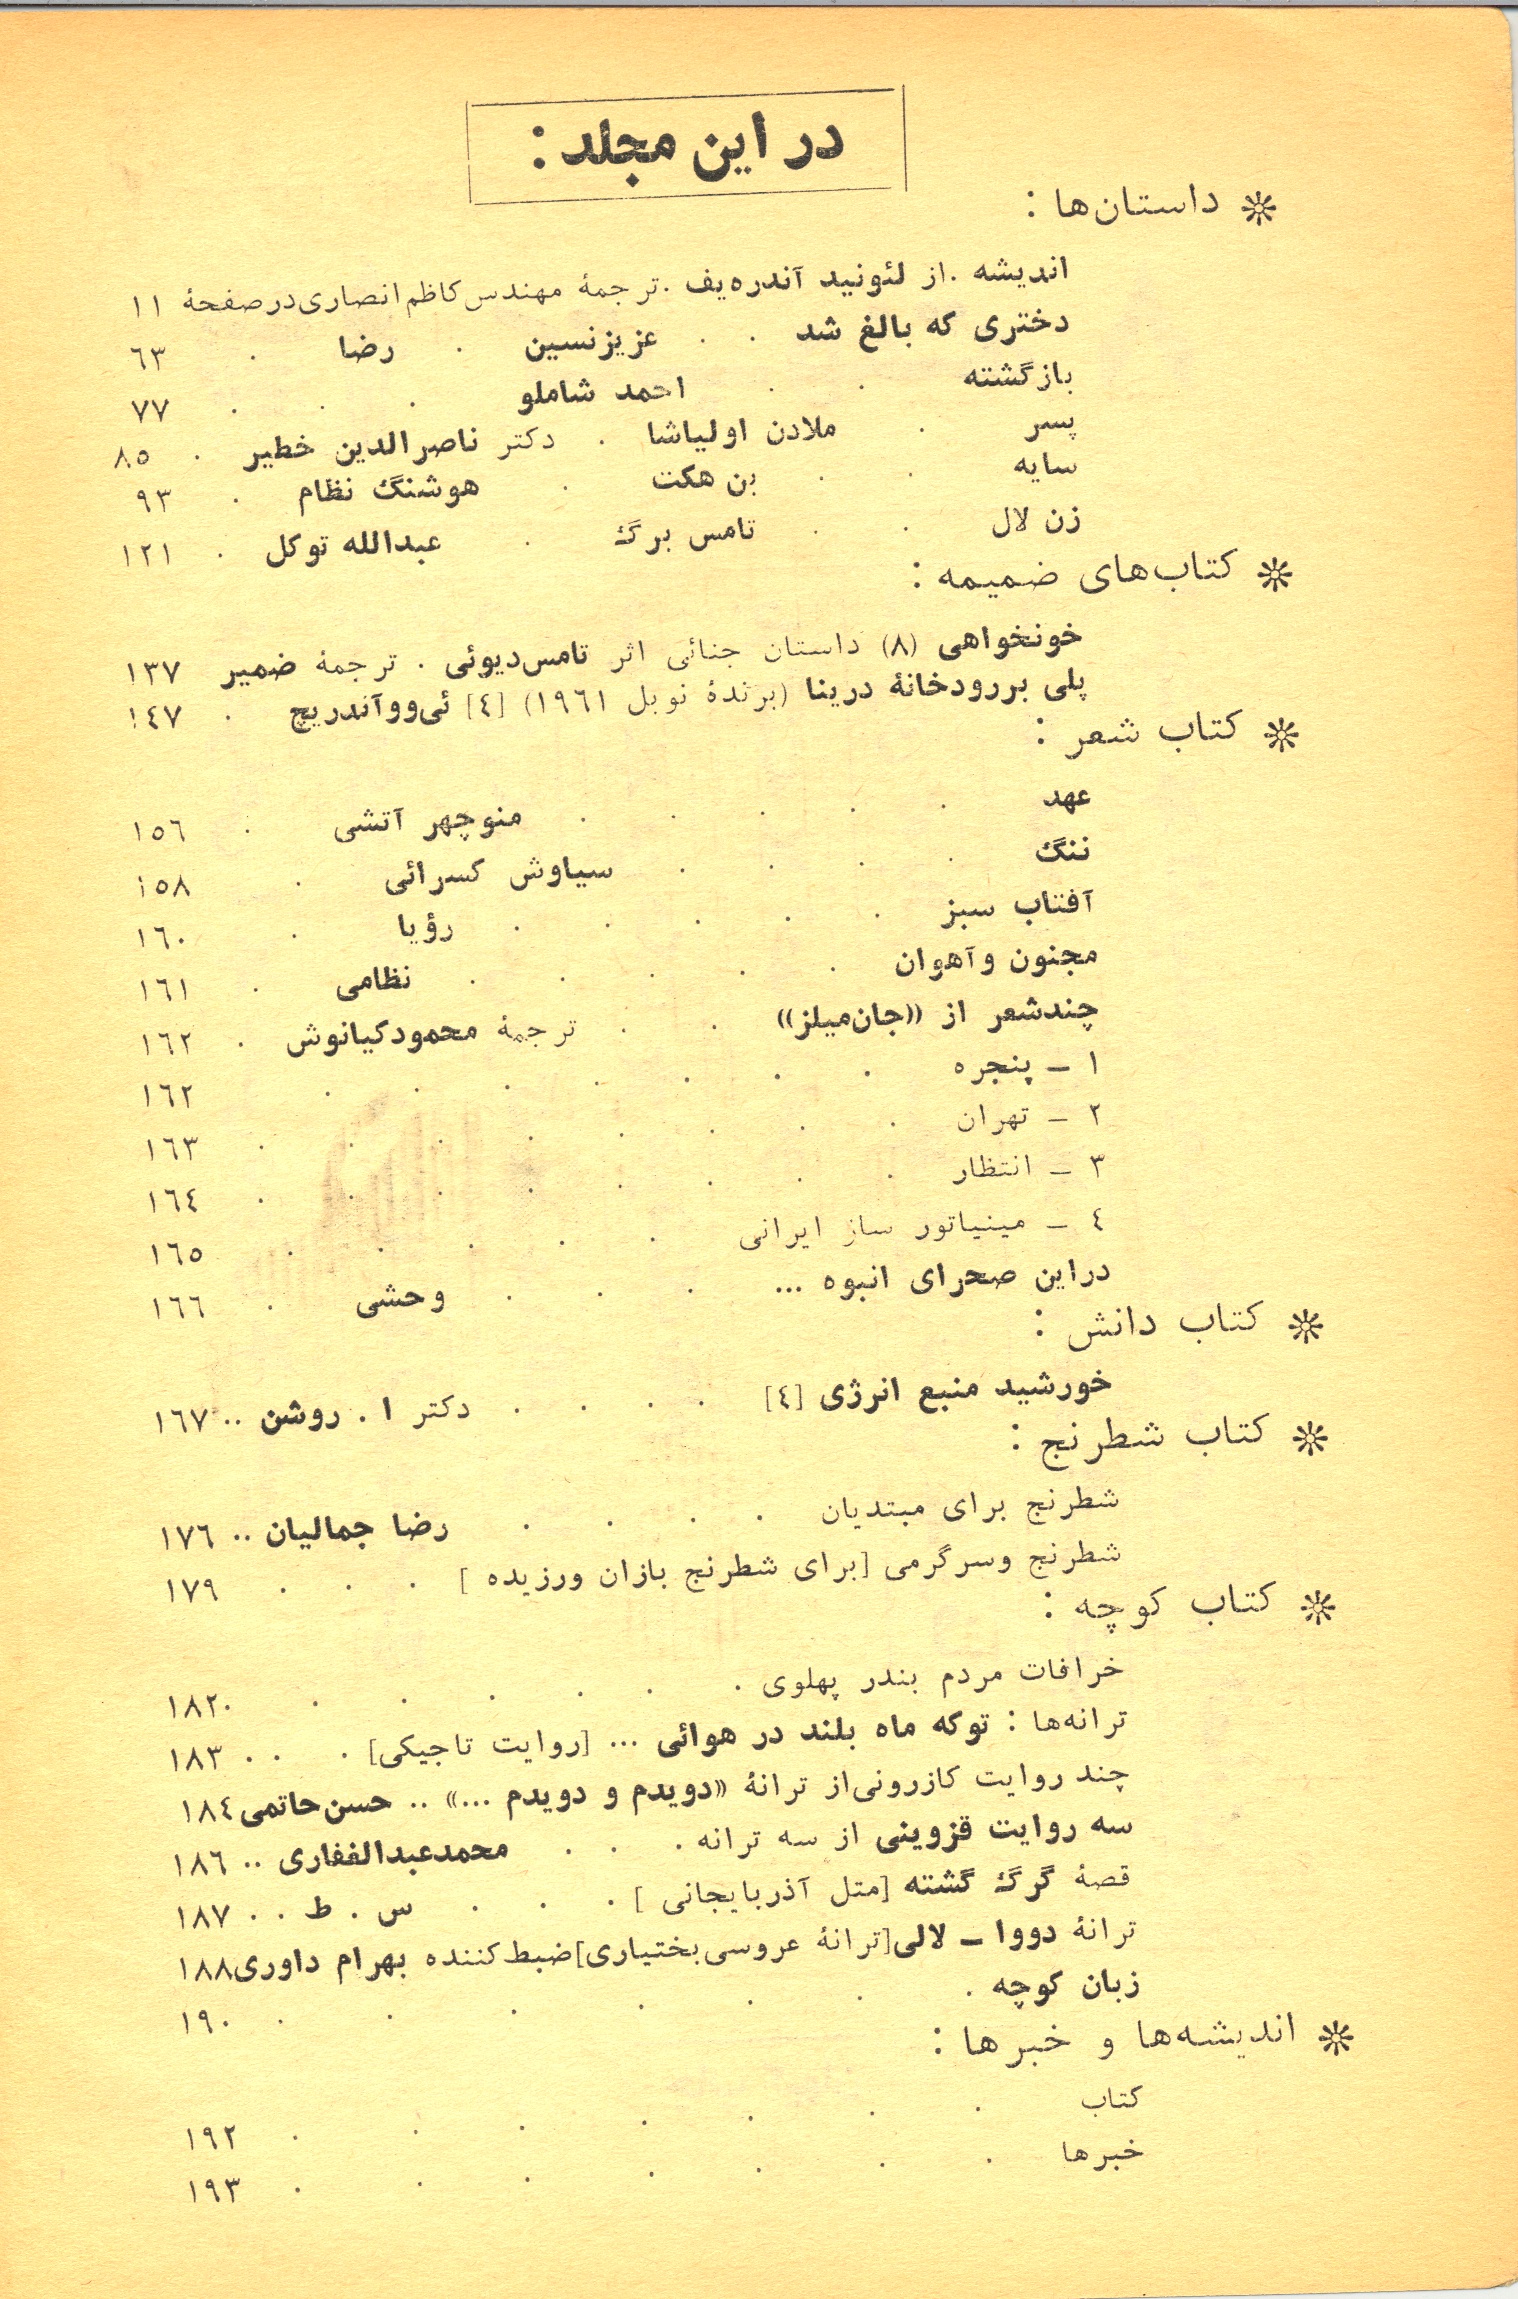 در این مجلد :
داستان‌ها :
اندیشه . از لئونید آندره‌یف . ترجمهٔ مهندس کاظم انصاری در صفحهٔ ۱۱
دختری که بالغ شد . . عزیزنسین . رضا . ٦۳
بازگشته . . احمد شاملو . . . ۷۷
پسر . ملادن اولیاشا . دکتر ناصرالدین خطیر . ۸٥
سایه . . بن هکت . هوشنگ نظام . ۹۳
زن لال . . تامس برگ . عبدالله توکل . ۱۲۱
کتاب‌های ضمیمه :
خونخواهی (۸) داستان جنائی اثر تامس‌دیوئی . ترجمهٔ ضمیر ۱۳۷
پلی بررودخانهٔ درینا (برندهٔ نوبل ۱۹٦۱) [٤] ئی‌ووآندریچ . ۱٤۷
کتاب شعر :
عهد . . . . . منوچهر آتشی . ۱٥٦
ننگ . . . . سیاوش کسرائی . ۱٥۸
آفتاب سبز . . . . . رؤیا . ۱٦۰
مجنون وآهوان . . . . . نظامی . ۱٦۱
چندشعر از ((جان‌میلز)) . . ترجمهٔ محمودکیانوش . ۱٦۲
۱ ـ پنجره . . . . . . . ۱٦۲
۲ ـ تهران . . . . . . . . ۱٦۳
۳ ـ انتظار . . . . . . . . ۱٦٤
٤ ـ مینیاتور ساز ایرانی . . . . . ۱٦٥
دراین صحرای انبوه ... . . . وحشی . ۱٦٦
کتاب دانش :
خورشید منبع انرژی [٤] . . . . دکتر ا . روشن .. ۱٦۷
کتاب شطرنج :
شطرنج برای مبتدیان . . . . رضا جمالیان .. ۱۷٦
شطرنج وسرگرمی [برای شطرنج بازان ورزیده ] . . . ۱۷۹
کتاب کوچه :
خرافات مردم بندر پهلوی . . . . . . ۱۸۲۰
ترانه‌ها : توکه ماه بلند در هوائی ... [روایت تاجیکی] . . . ۱۸۳
چند روایت کازرونی‌از ترانهٔ «دویدم و دویدم ...» .. حسن‌حاتمی ۱۸٤
سه روایت قزوینی از سه ترانه . . . محمدعبدالغفاری .. ۱۸٦
قصهٔ گرگ گشته [متل آذربایجانی ] . . . س . ط . . ۱۸۷
ترانهٔ دووا ـ لالی[ترانهٔ عروسی‌بختیاری]ضبط‌کننده بهرام داوری۱۸۸
زبان کوچه . . . . . . . ۱۹۰
اندیشه‌ها و خبرها :
کتاب . . . . . . . ۱۹۲
خبرها . . . . . . . ۱۹۳